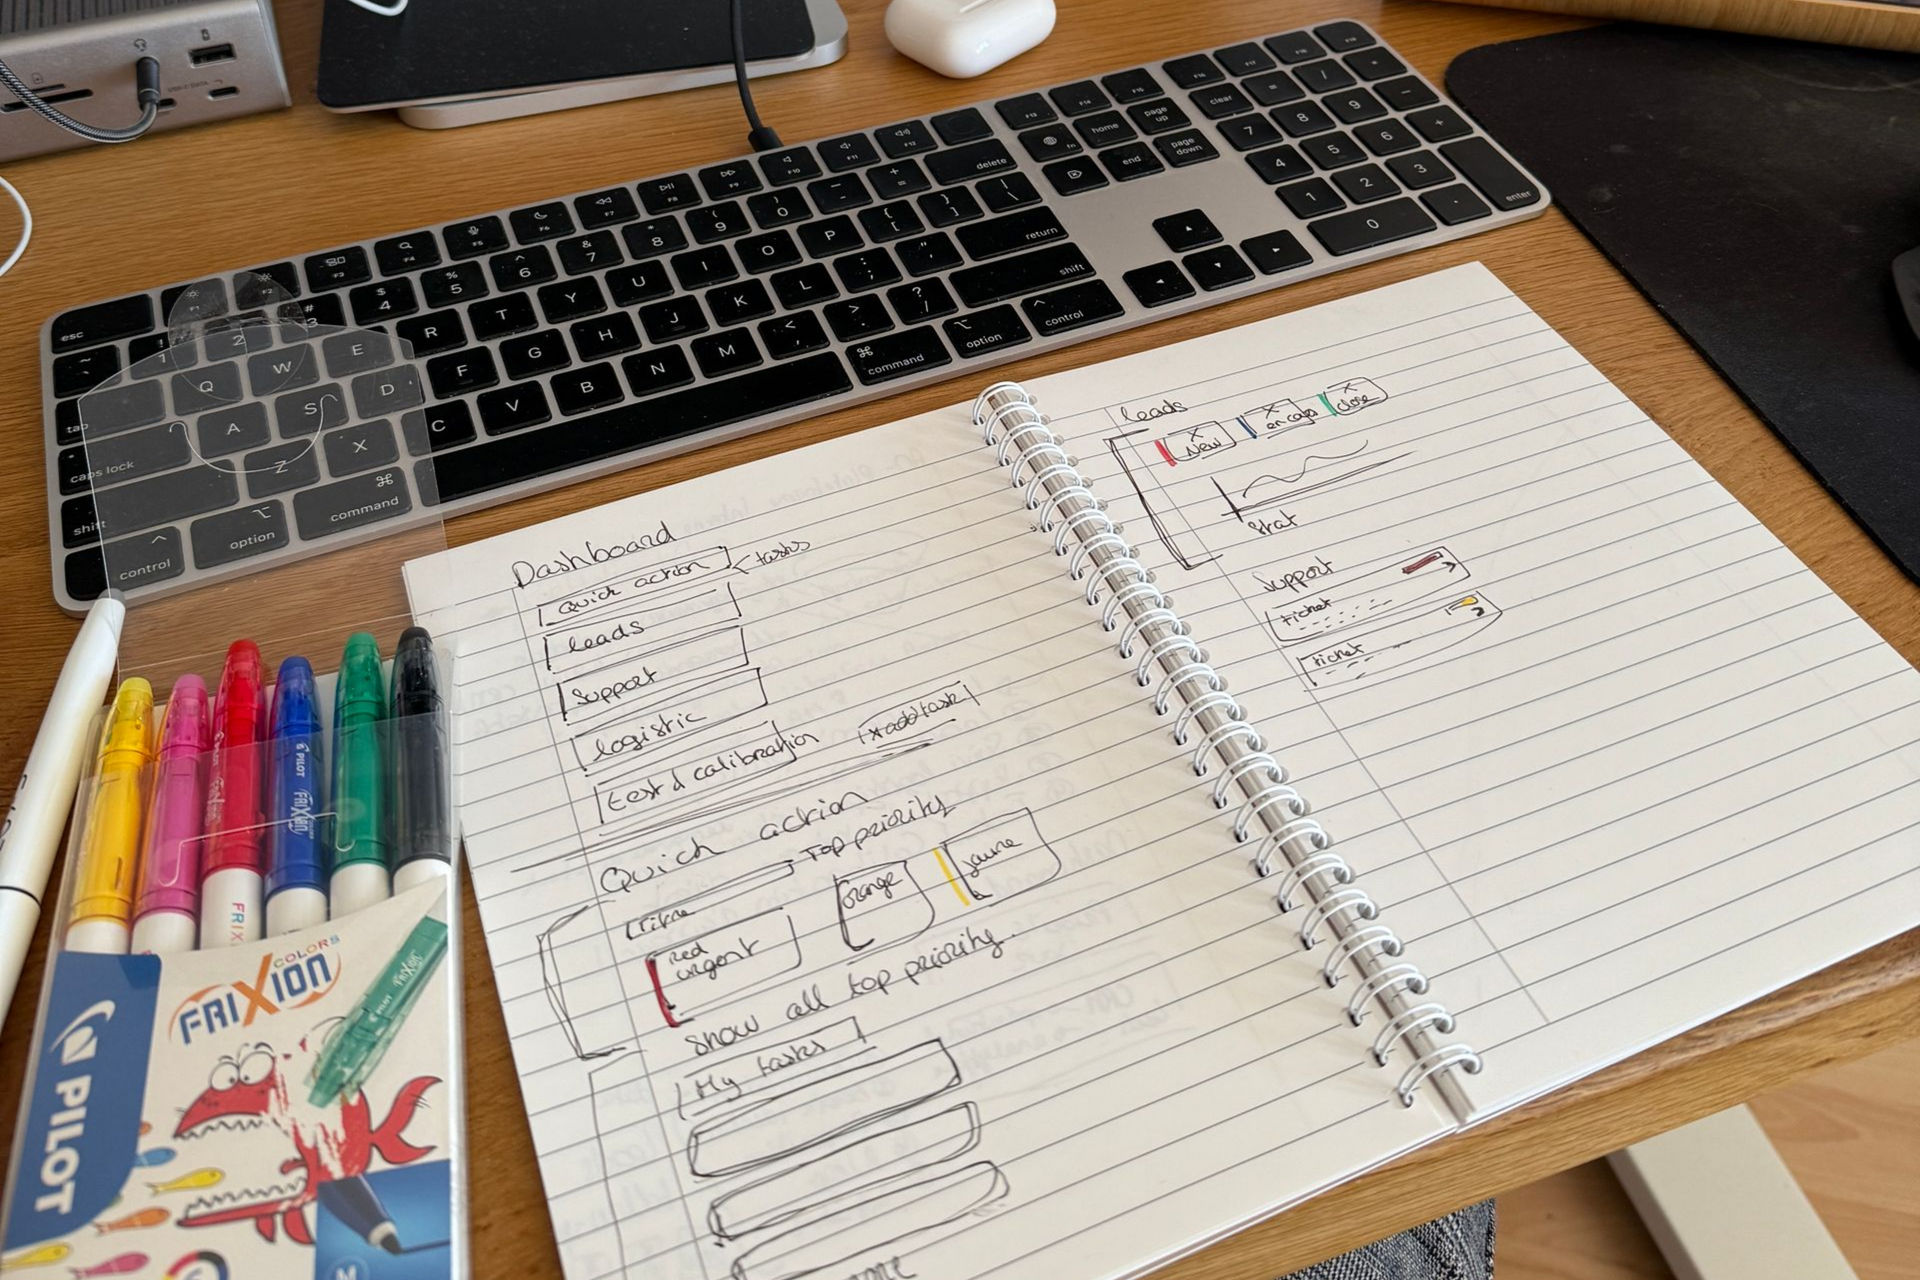 Dashboard
Quick action
tasks
leads
Support
logistic
test d calibration
x add task
Quick action
Top priority
red
urgent
Orange
jaune
Show all top priority
My tasks
leads
x
New
x
en cours
x
close
Stat
Support
ticket
ticket
PILOT
FRIXION
COLORS
esc
tab
caps lock
shift
control
option
command
command
option
control
shift
return
delete
home
end
page up
page down
clear
enter
fn
Q
W
E
R
T
Y
U
I
O
P
A
S
D
F
G
H
J
K
L
Z
X
C
V
B
N
M